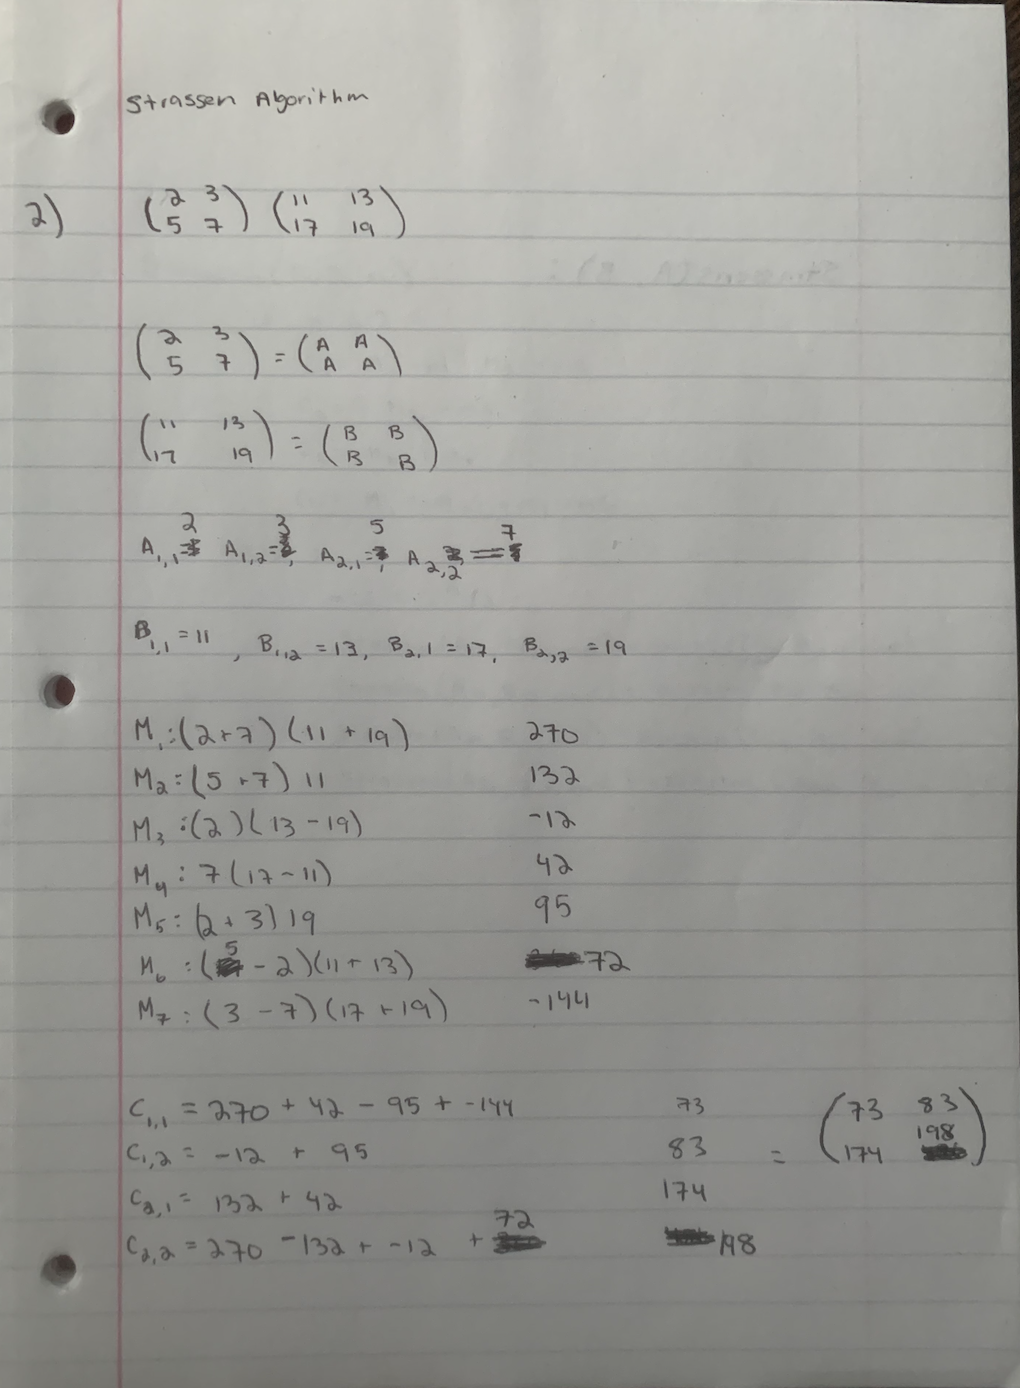 Strassen Algorithm
2) (2 3 (11 13
5 7) 17 19)
(2 3 = (A A
5 7) A A)
(11 13 = (B B
17 19) B B)
2 3 5 7
A1,1= A1,2= , A2,1= , A2,2 =
B1,1 = 11 , B1,2 = 13, B2,1 = 17, B2,2 = 19
M1:(2+7)(11 + 19) 270
M2:(5 +7) 11 132
M3:(2)(13 - 19) -12
M4: 7(17-11) 42
M5: (2+3) 19 95
M6 :(5 - 2)(11+ 13) 72
M7: (3 - 7)(17 + 19) -144
C1,1 = 270 + 42 - 95 + -144 73 (73 83
C1,2 = -12 + 95 83 = 174 198)
C2,1 = 132 + 42 174
C2,2 = 270 -132 + -12 + 72 198